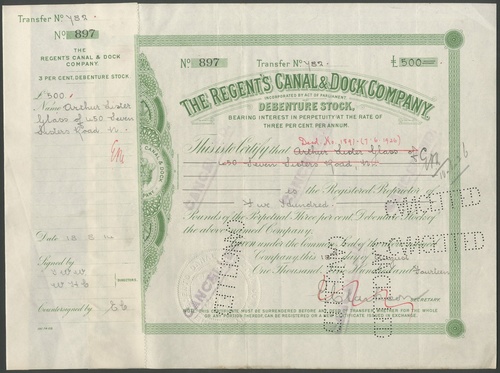 Transfer No. Y82.
No. 897
THE
REGENT'S CANAL & DOCK
COMPANY.
3 PER CENT. DEBENTURE STOCK.
£500:
Name Arthur Lister
Glass of 450 Seven
Sisters Road, N.
Date 18. 8.
Signed by
DIRECTORS.
Countersigned by
No. 897 Transfer No. Y82. £500
THE REGENT'S CANAL & DOCK COMPANY.
INCORPORATED BY ACT OF PARLIAMENT.
DEBENTURE STOCK,
BEARING INTEREST IN PERPETUITY AT THE RATE OF
THREE PER CENT. PER ANNUM.
This is to Certify that Arthur Lister Glass of
450 Seven Sisters Road, N.
is the Registered Proprietor of
Five Hundred
Pounds of the Perpetual Three per cent Debenture
the above named Company.
Given under the Common Seal of the
Company, this
One Thousand Nine Hundred and Fourteen
SECRETARY
NOTE, THIS CERTIFICATE MUST BE SURRENDERED BEFORE ANY TRANSFER, WHETHER FOR THE WHOLE
OR ANY PORTION THEREOF, CAN BE REGISTERED OR A NEW CERTIFICATE ISSUED IN EXCHANGE.
CANCELLED
CANCELLED
CANCELLED
CANCELLED